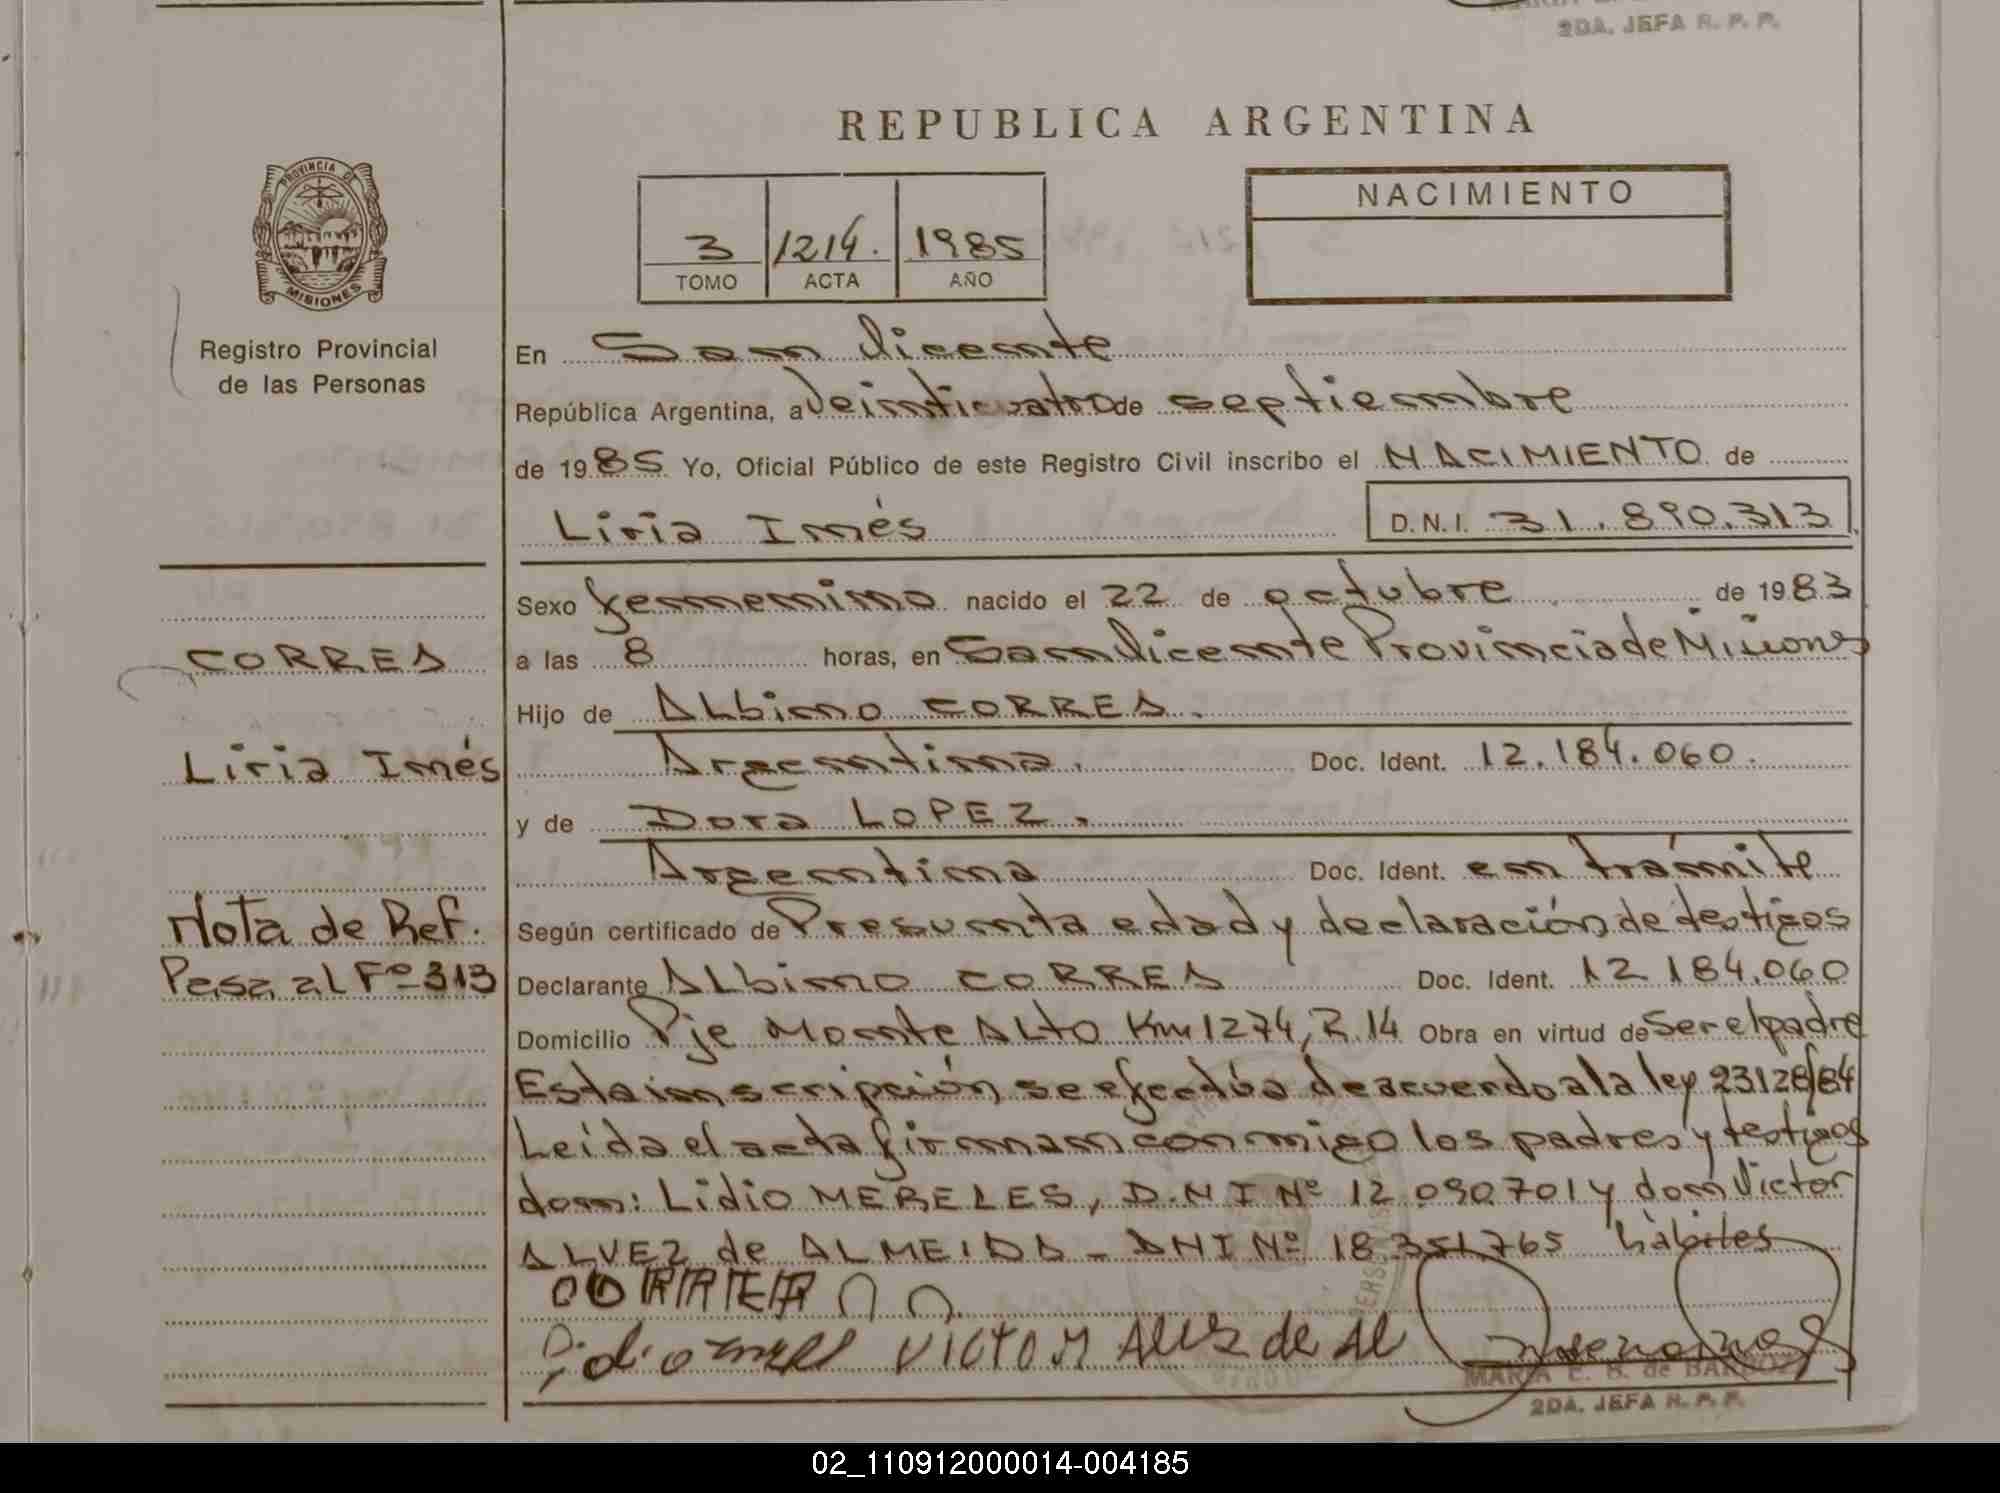 2DA. JEFA R. P. P.
REPUBLICA ARGENTINA
PROVINCIA DE
MISIONES
Registro Provincial
de las Personas
3 1214. 1985
TOMO ACTA AÑO
NACIMIENTO
En San Vicente
República Argentina, a Veinticuatro de septiembre
de 1985 Yo, Oficial Público de este Registro Civil inscribo el NACIMIENTO de
Liria Inés D.N.I. 31.890.313
Sexo femenino nacido el 22 de octubre de 1983
CORREA
a las 8 horas, en San Vicente Provincia de Misiones
Hijo de Albino CORREA.
Liria Inés
Argentina. Doc. Ident. 12.184.060.
y de Dora LOPEZ.
Argentina Doc. Ident. en trámite
Nota de Ref.
Pasa al Fº 313
Según certificado de Presunta edad y declaración de testigos
Declarante Albino CORREA Doc. Ident. 12 184.060
Domicilio Pje Monte Alto Km 1274, R.14 Obra en virtud de Ser el padre
Esta inscripción se efectúa de acuerdo a la ley 23128/84
Leída el acta firman conmigo los padres y testigos
don: Lidio MERELES, D.N I Nº 12 090.701 y don Victor
ALVEZ de ALMEIDA - DNI Nº 18 351765 hábiles
CORREA
VICTOR Alvez de Al
MARIA E. B. de BARBOZA
2DA. JEFA R. P. P.
02_110912000014-004185